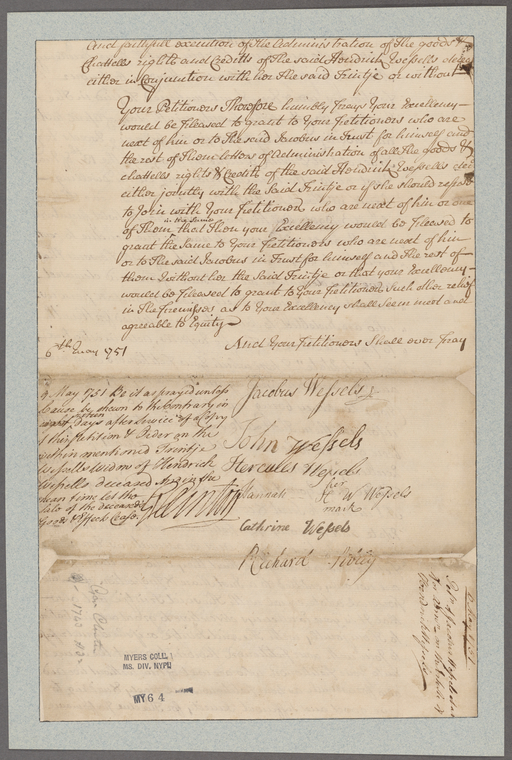 And faithfull execution of the Administration of the goods &
Chattells rights and Credits of the said Hendrick Wessells
either in Conjunction with her the said Trintje or without
Your Petitioners Therefore humbly Prays Your Excellency
would be Pleased to grant to Your Petitioners who are
next of kin or to the said Jacobus in Trust for himself and
the rest of them letters of Administration of all the goods &
chattells rights & Credits of the said Hendrick Wessells
either jointly with the Said Trintje or if she should refuse
to join with Your Petitioners who are next of kin or one
of them in the same that then your Excellency would be Pleased to
grant the Same to Your Petitioners who are next of kin
or to the said Jacobus in Trust for himself and The rest of
them without her the Said Trintje or that your Excellency
would be Pleased to grant to Your Petitioners such other relief
in the Premisses as to Your Excellency shall seem meet and
agreeable to Equity
6th May 1751
And Your Petitioners Shall ever Pray
May 1751 Be it as prayed unless
Cause be shown to the Contrary in
Days after Service of a Copy
this Petition & Order on the
within mentioned Trintje
Wessells Widow of Hendrick
Wessells deceased And in the
mean time let the
Sale of the deceased
Goods & Effects Cease.
G Clinton
Jacobus Wessels
John Wessels
Hercules Wessels
her
Hannah H W Wessels
mark
Cathrine Wessels
Richard Sibley
MYERS COLL.
MS. DIV. NYPL
MY 64